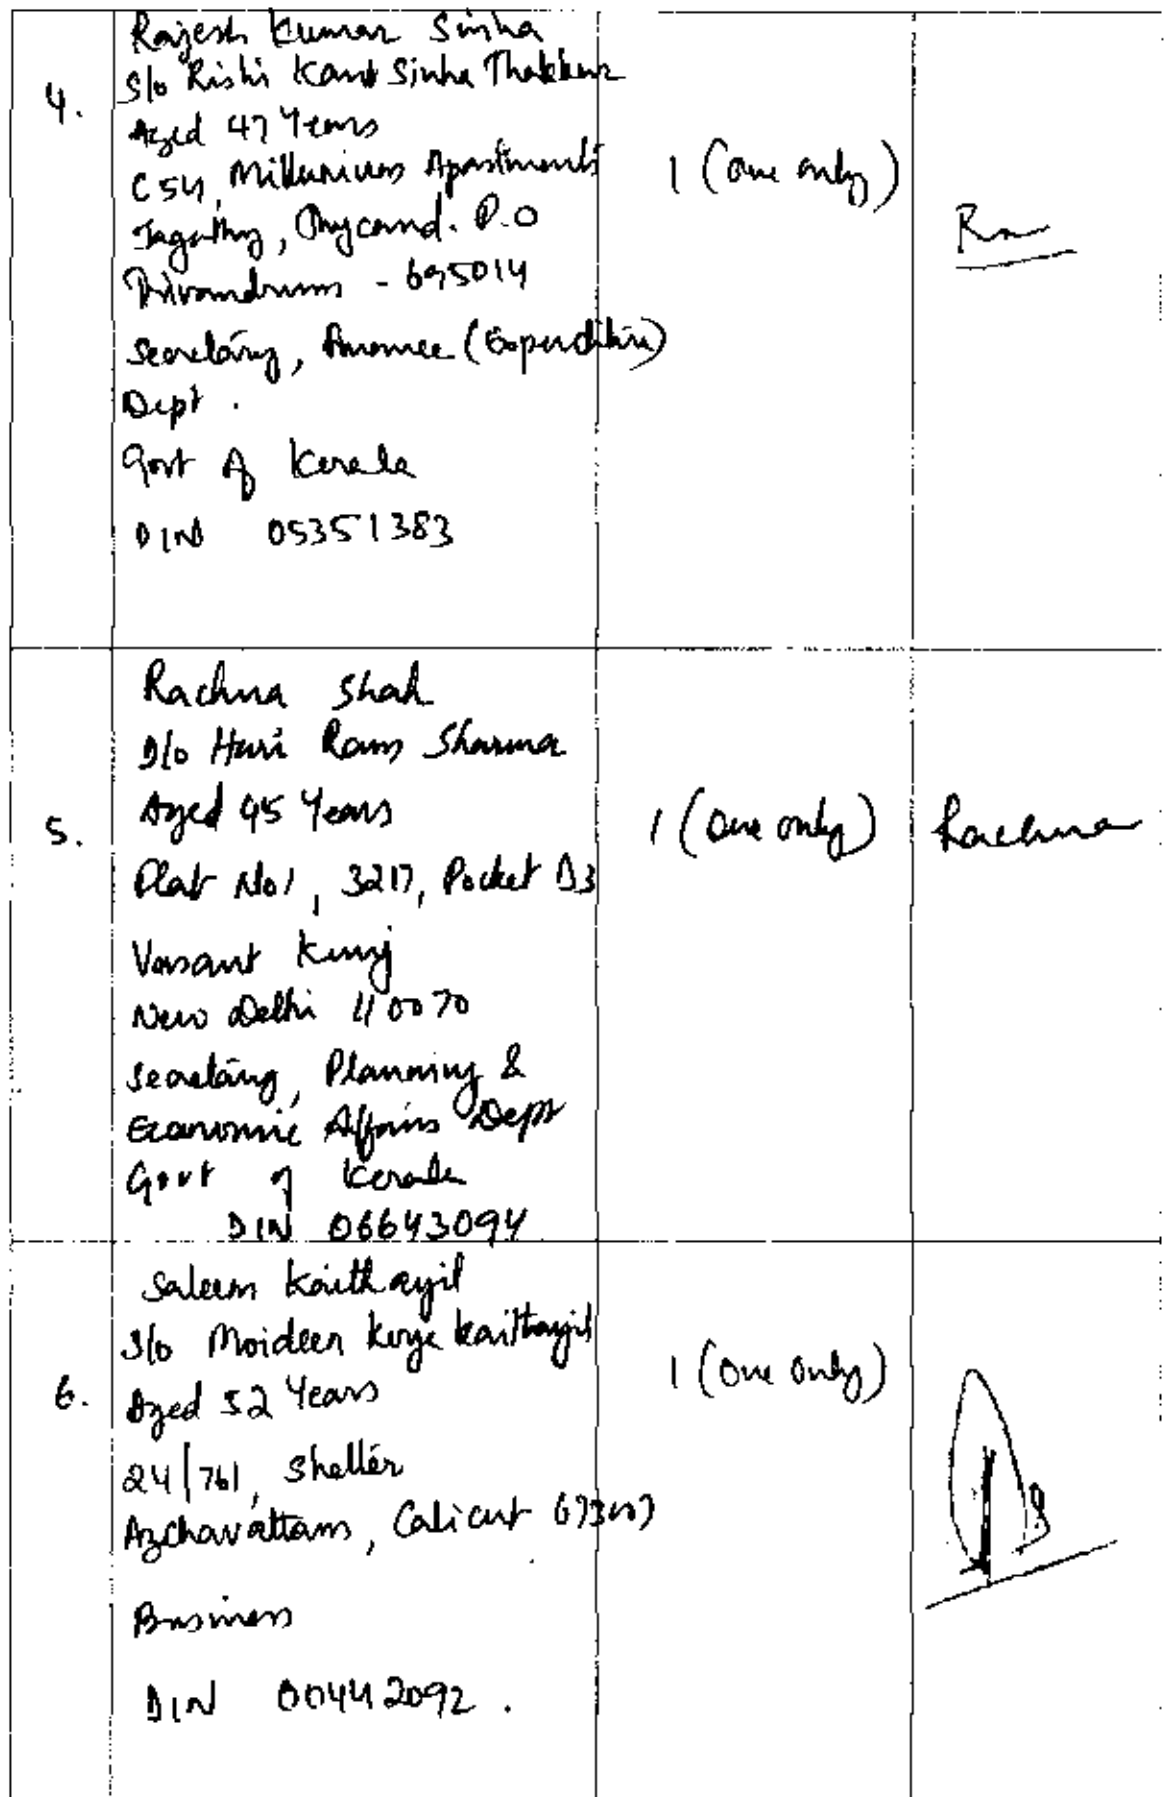 4.
Rajesh Kumar Sinha
S/o Rishi Kant Sinha Thakkur
Aged 47 Years
C54, Millenium Apartments
Jagathy, Thycaud. P.O
Trivandrum - 695014
Secretary, Finance (Expenditure)
Dept.
Govt of Kerala
DIN 05351383
1 (One only)
5.
Rachna Shah
D/o Hari Ram Sharma
Aged 45 Years
Flat No 1, 3217, Pocket D3
Vasant Kunj
New Delhi 110070
Secretary, Planning &
Economic Affairs Dept
Govt of Kerala
DIN 06643094
1 (One only)
Rachna
6.
Saleem Kaithayil
S/o Moideen Koya Kaithayil
Aged 52 Years
24/761, Shelter
Azchavattam, Calicut 673007
Business
DIN 00442092.
1 (One only)